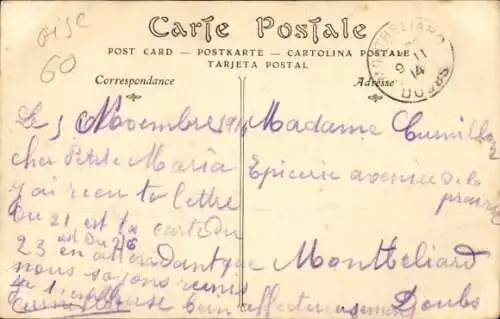 oise
60
Carte Postale
POST CARD — POSTKARTE — CARTOLINA POSTALE
TARJETA POSTAL
Correspondance
Adresse
MONTBELIARD
9 11
14
DOUBS
Le 5 Novembre 1914
cher Petite Maria
j'ai recu ta lettre
du 21 est la carte du
23 est du 26
en attendant que
nous soyons reunis
je t'embrasse bien affectueusement
Madame
Epicerie avenue de la
prairie
Montbeliard
Doubs